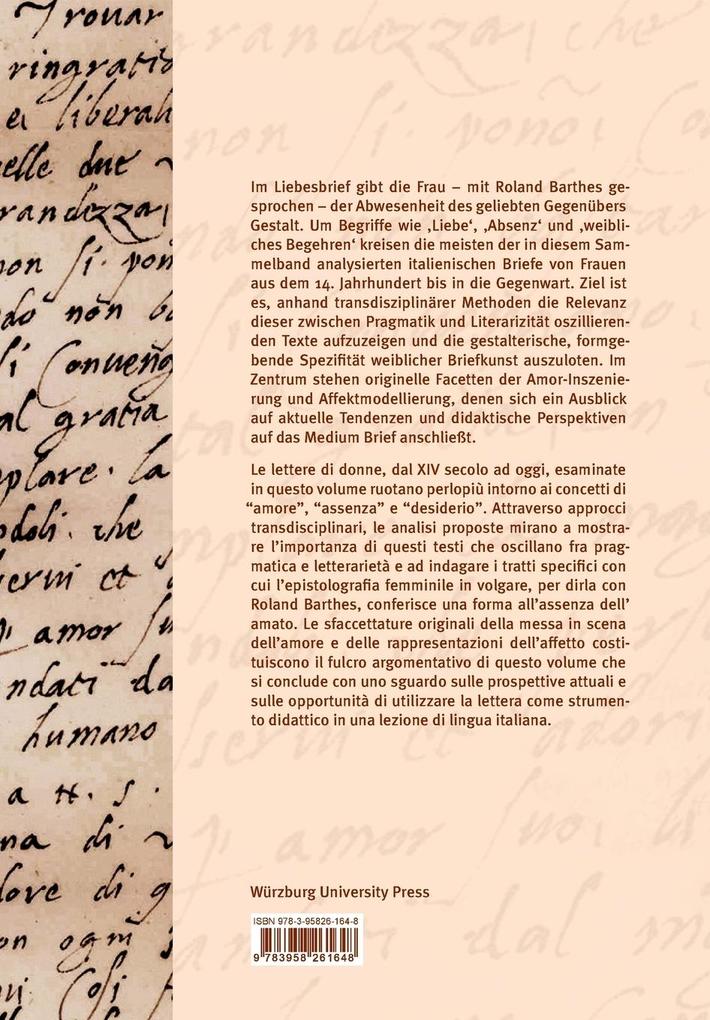 Trovar
ringratia
et liberali
elle due
randezza,
non si. pon
do non
si Conueng
al gratia
plare. la
che
serui et
amor su
ndati da
humano
a
na di
dore di g
on ogni
Cosi
Im Liebesbrief gibt die Frau – mit Roland Barthes ge-
sprochen – der Abwesenheit des geliebten Gegenübers
Gestalt. Um Begriffe wie ‚Liebe‘, ‚Absenz‘ und ‚weibli-
ches Begehren‘ kreisen die meisten der in diesem Sam-
melband analysierten italienischen Briefe von Frauen
aus dem 14. Jahrhundert bis in die Gegenwart. Ziel ist
es, anhand transdisziplinärer Methoden die Relevanz
dieser zwischen Pragmatik und Literarizität oszillieren-
den Texte aufzuzeigen und die gestalterische, formge-
bende Spezifität weiblicher Briefkunst auszuloten. Im
Zentrum stehen originelle Facetten der Amor-Inszenie-
rung und Affektmodellierung, denen sich ein Ausblick
auf aktuelle Tendenzen und didaktische Perspektiven
auf das Medium Brief anschließt.
Le lettere di donne, dal XIV secolo ad oggi, esaminate
in questo volume ruotano perlopiù intorno ai concetti di
“amore”, “assenza” e “desiderio”. Attraverso approcci
transdisciplinari, le analisi proposte mirano a mostra-
re l’importanza di questi testi che oscillano fra prag-
matica e letterarietà e ad indagare i tratti specifici con
cui l’epistolografia femminile in volgare, per dirla con
Roland Barthes, conferisce una forma all’assenza dell’
amato. Le sfaccettature originali della messa in scena
dell’amore e delle rappresentazioni dell’affetto costi-
tuiscono il fulcro argomentativo di questo volume che
si conclude con uno sguardo sulle prospettive attuali e
sulle opportunità di utilizzare la lettera come strumen-
to didattico in una lezione di lingua italiana.
Würzburg University Press
ISBN 978-3-95826-164-8
9 783958 261648